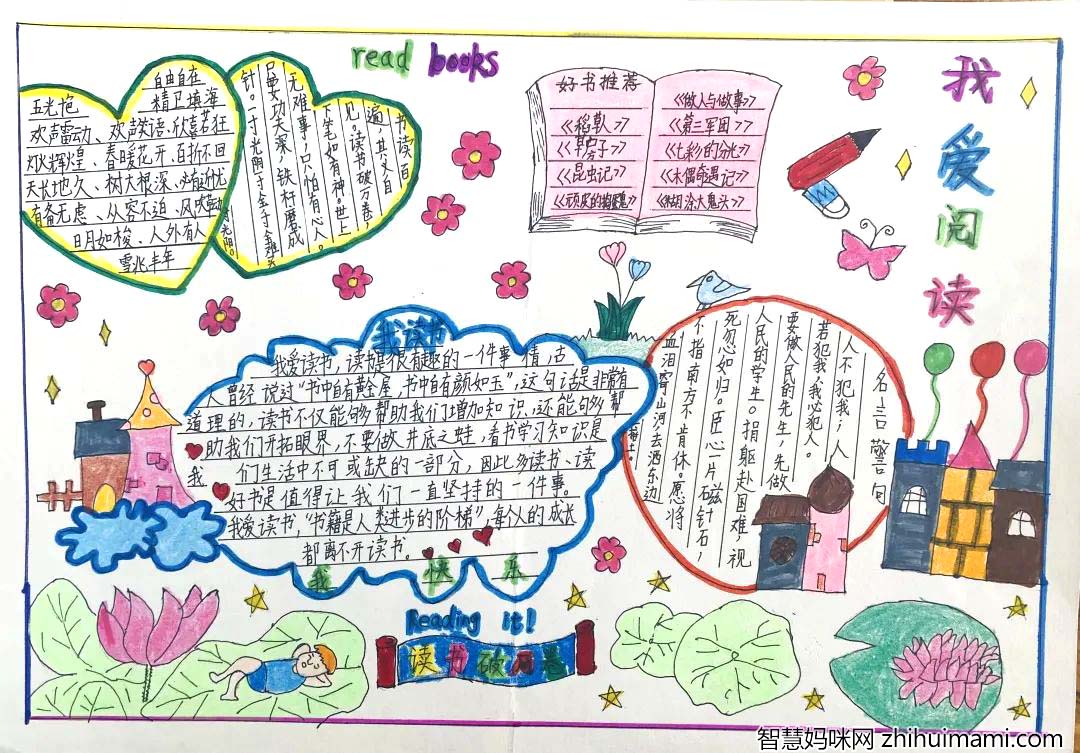 read books
我爱阅读
五光
自由自在
精卫填海
欢声雷动、欢声笑语、欣喜若狂
灯火辉煌、春暖花开、百折不回
天长地久、树大根深、
有备无虑、从容不迫、风吹
日月如梭、人外有人
雪兆丰年
书读百
遍，其义自
见。读书破万卷，
下笔如有神。世上
无难事，只怕有心人。
只要功夫深，铁杵磨成
针。寸光阴寸金寸金难买
光阴。
好书推荐
《稻草人》
《草房子》
《昆虫记》
《做人与做事》
《第三军团》
《七彩的分光》
《木偶奇遇记》
《糊涂大鬼头》
我读书
我爱读书，读书是很有趣的一件事情，古
人曾经说过“书中自有黄金屋，书中自有颜如玉”，这句话是非常有
道理的，读书不仅能够帮助我们增加知识，还能句多帮
助我们开拓眼界，不要做井底之蛙，看书学习知识是
我们生活中不可或缺的一部分，因此多读书、读
好书是值得让我们一直坚持的一件事。
我爱读书，“书籍是人类进步的阶梯”，每个人的成长
都离不开读书。
我快乐
名言警句
人不犯我；人
若犯我，我必犯人。
要做人民的先生，先做
人民的学生。捐躯赴国难，视
死忽如归。臣心一片磁针石，
不指南方不肯休。愿将
血泪寄山河去洒东边
Reading it!
读书破万卷
智慧妈咪网 zhihuimami.com